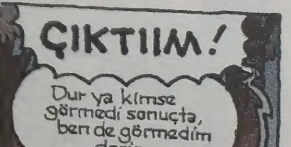 ÇIKTIIM!
Dur ya kimse
görmedi sonuçta,
ben de görmedim